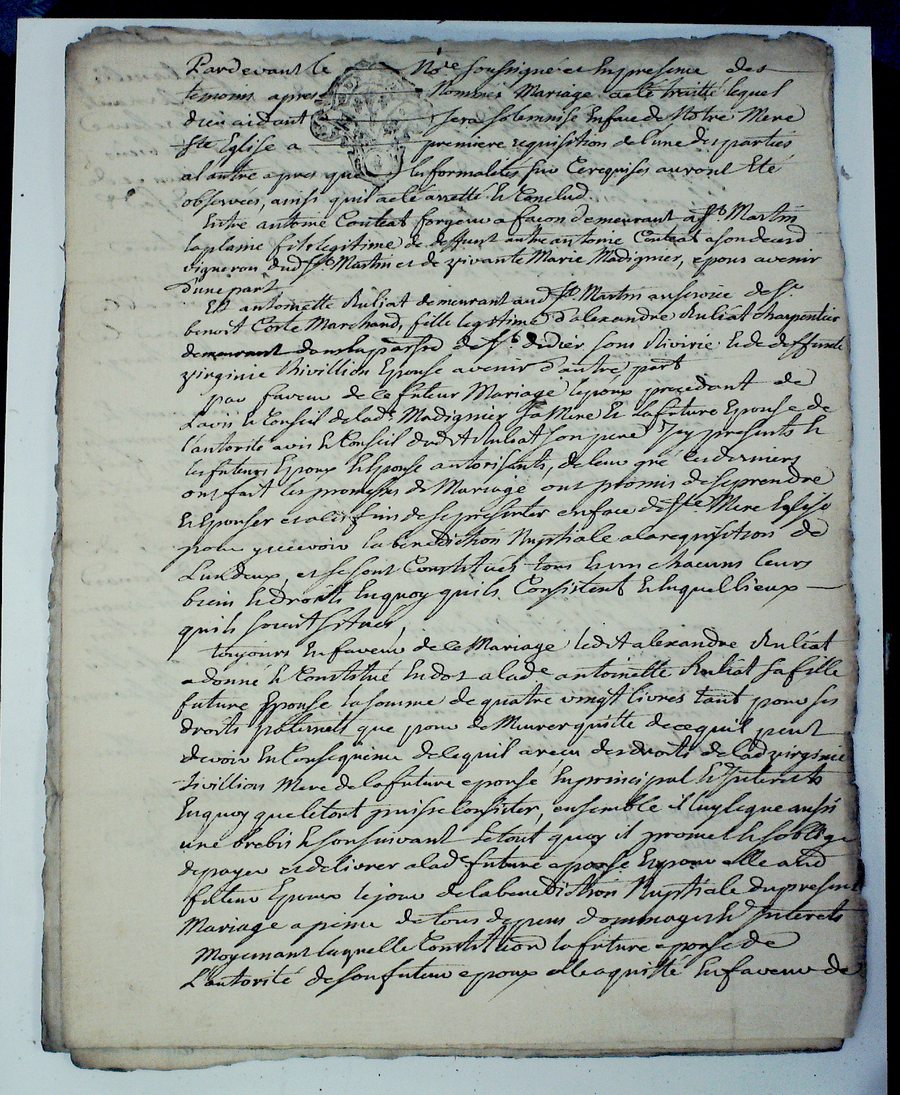 Pardevant le No.re soussigné et en presence des
temoins apres Nommes Mariage a eté traitté lequel
dieu aidant sera solemnise en face de Notre Mere
Ste Eglise a premiere requisition de l'une des parties
a l'autre apres que les formalités sur ce requises auront Eté
observées, ainsi quil a eté arretté & Conclud.
Entre antoine Conteat forgeur a façon demeurant a St. Martin
la plaine fils legitime de deffunt autre antoine Conteat a son deced
vigneron dud St Martin et de vivante Marie Madignier, epoux avenir
d'une part
Et antoinette Ruliat demeurant aud St. Martin au service de Sr.
benoit Corte Marchand, fille legitime d'alexandre Ruliat Charpentier
demeurant dans la parsse de St. didier sous Rivirie & de deffunte
virginie Rivillion Epouse avenir d'autre part
par faveur de ce futeur Mariage l'epoux procedant de
L'avis & Conseil de lade Madignier sa Mere & la future Epouse de
l'autorité avis & Conseil dudit Ruliat son pere icy presents &
les futeurs Epoux & Epouse autorisants, de leur gré ces derniers
ont fait les promesses de Mariage ont promis de se prendre
& Epouser et a les fins de se presenter en face de Ste Mere Eglise
pour y recevoir la benediction Nuptiale a la requisition de
L'un deux, et se sont Constitués tous & un chacuns leurs
biens & droits En quoy quils Consistent & en quel lieux
quils soient situés,
toujours En faveur de ce Mariage ledit alexandre Ruliat
a donné & Constitué En dot a lade antoinette Ruliat sa fille
future Epouse la somme de quatre vingt livres tant pour ses
droits paternels que pour demeurer quitte de ce quil peut
devoir En Consequence de ce quil a reçu des droits de lad virginie
Rivillion Mere de la future epouse En principal & Interets
En quoy que le tout puisse Consister, ensemble il luy legue aussi
une brebis & son suivant le tout quoy il promet & s'oblige
de payer et delivrer a lade future epouse Et pour elle aud
futeur Epoux le jour de la benediction Nuptiale du present
Mariage a peine de tous depens dommages & Interets
Moyennant laquelle Constitution la future epouse de
L'autorité de son futeur epoux elle a quitté En faveur de